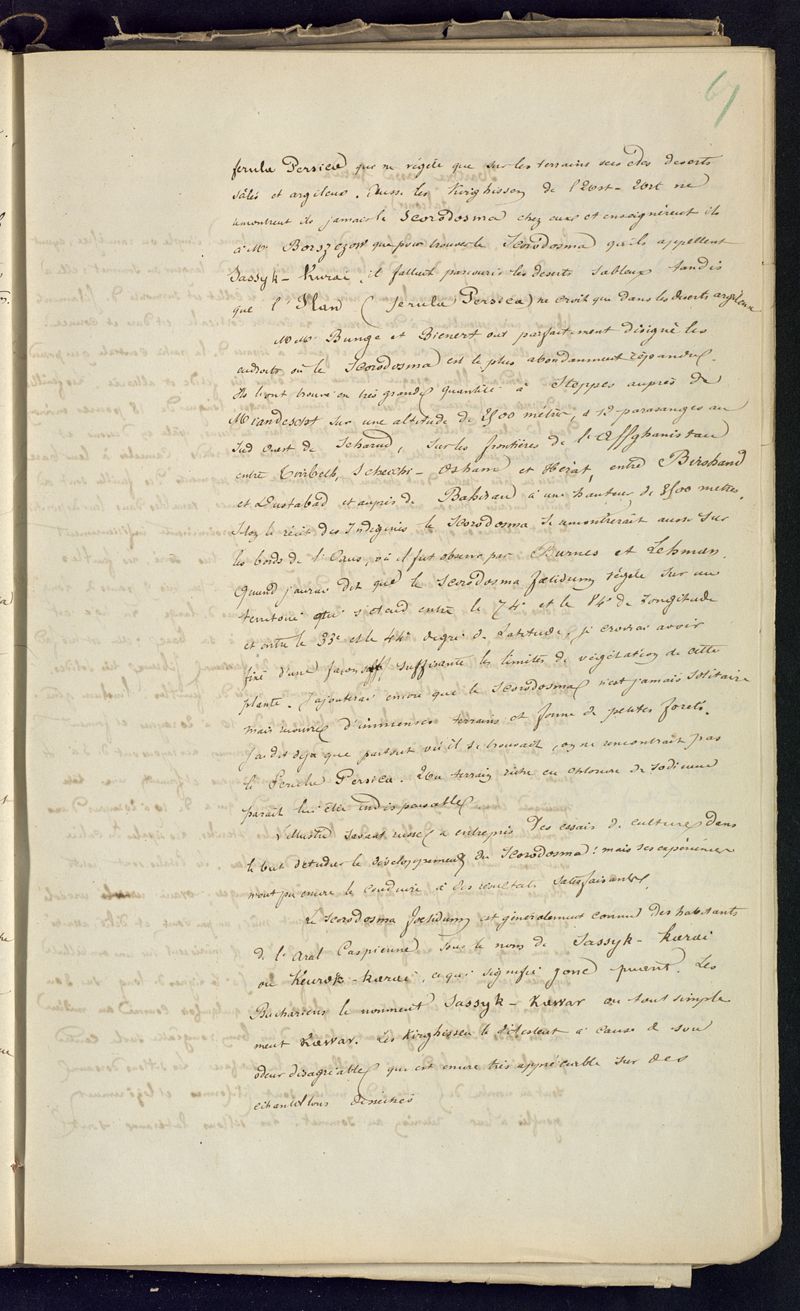 67
ferula Persica que ne végète que sur les terrains secs et des deserts
salés et argileux. Aussi les Kirghissen de l'Oest-Oert ne
rencontrent ils jamais le Scorodosma chez eux et enseignèrent ils
à Mr Borszczow que pour trouver le Scorodosma qu'ils appellent
Sassyk-Kurai, il fallait parcourir les deserts sableux tandis
que l'Ilan (ferula Persica) ne croit que dans les deserts argileux
MMrs Bunge et Bienert ont parfaitement désigné les
endroits où le Scorodosma est le plus abondamment répandu.
Ils l'ont trouvé en très grande quantité à Steppes auprès de
Miandescht sur une altitude de 2500 mètres, à 12 parasanges au
Sud Ouest de Scharud, sur les frontières de l'Affghanistan
entre Schechi- et Hérat, entre Birdhand
et Dustabad et auprès de à une hauteur de 2500 mètres.
le récit des Indigènes le Scorodosma se rencontrerait aussi sur
les bords de l'Oxus, où il fut observé par Burnes et Lehman.
Quand j'aurai dit que le Scorodosma foetidum végète sur un
territoire qui s'étend entre le 74e et le 84e de Longitude
et entre le 33e et le 44e degré de Latitude, je croirai avoir
fixé d'une façon suffisante les limites de végétation de cette
plante. J'ajouterai encore que le Scorodosma n'est jamais solitaire
mais recouvre d'immenses terrains et forme de petites forets.
J'ai dit déjà que partout où il se trouvait, on ne rencontrait pas
le Ferula Persica. Un terrain riche en chlorure de sodium
parait lui être indispensable.
L'illustre savant russe a entrepris des essais de culture dans
le but d'étudier le développement du Scorodosma: mais ses expériences
n'ont pu encore le conduire à des resultats satisfaisants.
Le Scorodosma foetidum est généralement connu des habitants
de l'Aral Caspienne sous le nom de Sassyk-Karai
ou Keurok-karai, ce qui signifie jonc puant. Les
Buchariens le nomment Sassyk-Kawar ou tout simple
ment Kawar. Les Kirghissen le détestent à cause de son
odeur désagréable, qui est encore très appréciable sur des
échantillons déséchés